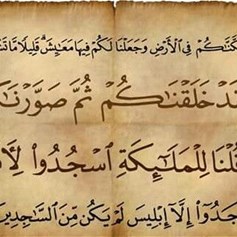 مَكَّنَّٰكُمْ فِى ٱلْأَرْضِ وَجَعَلْنَا لَكُمْ فِيهَا مَعَٰيِشَ ۗ قَلِيلًا مَّا تَشْ
قَدْ خَلَقْنَٰكُمْ ثُمَّ صَوَّرْنَٰ
قُلْنَا لِلْمَلَٰٓئِكَةِ ٱسْجُدُوا۟ لِأ
جَدُوٓا۟ إِلَّآ إِبْلِيسَ لَمْ يَكُن مِّنَ ٱلسَّٰجِدِينَ